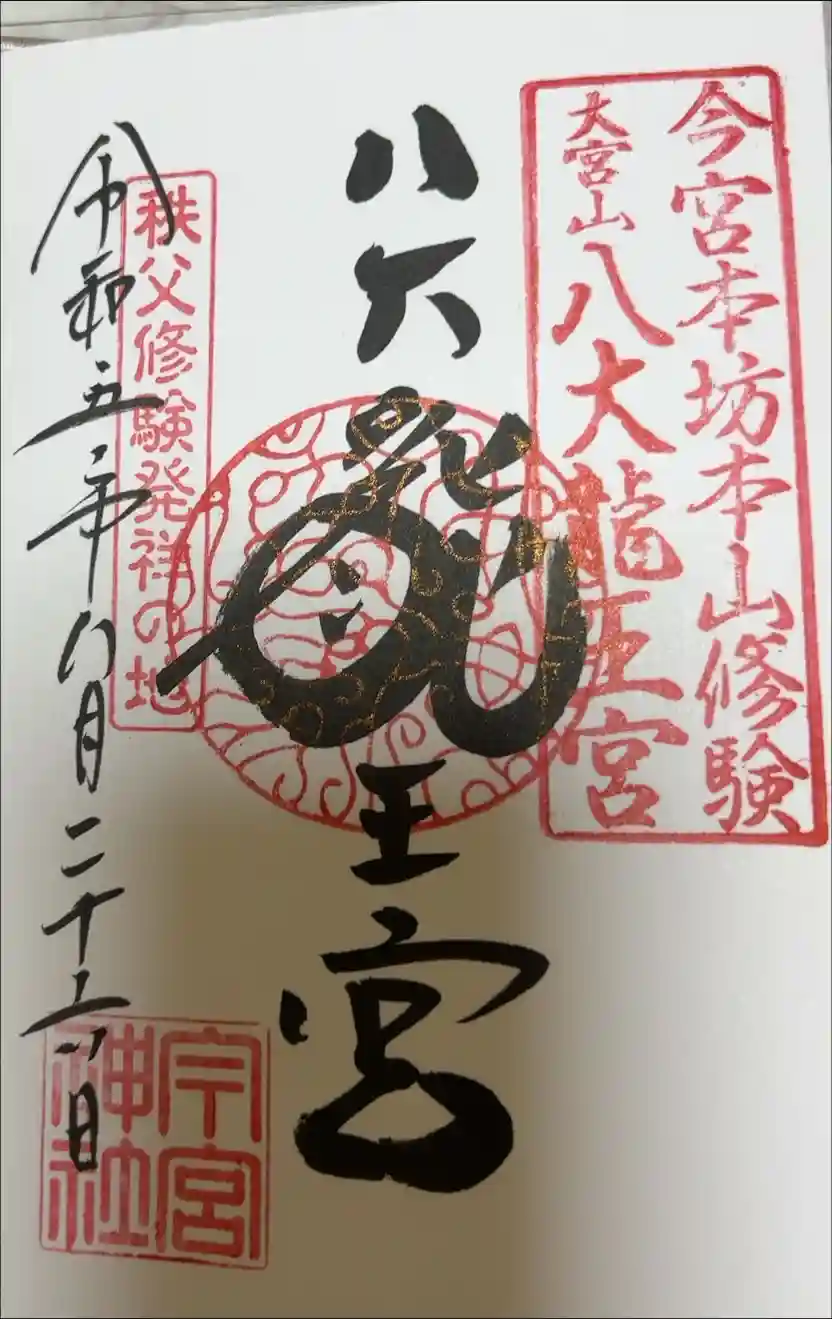 今宮本坊本山修験
大宮山八大龍王宮
八大龍王宮
秩父修験発祥の地
令和五年八月二十六日
今宮
神社